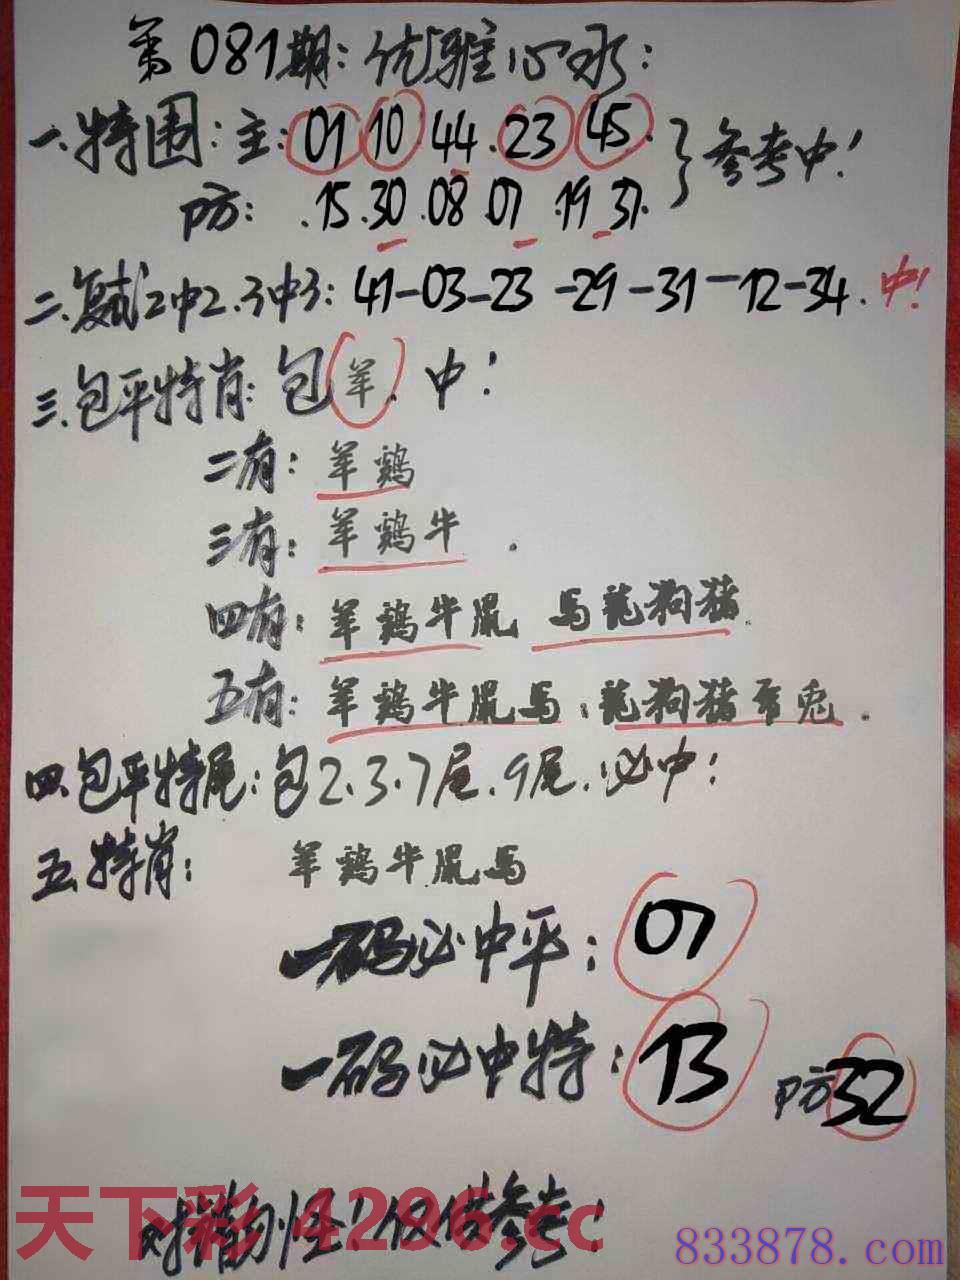 第081期：优雅心水：
一.特围：主：01 10.44.23 45.
参考中！
防：.15.30.08.07.19.31.
二.复试2中2.3中3：41-03-23-29-31-12-34.中！
三.包平特肖：包羊.中！
二有：羊鷄
三有：羊鷄牛.
四有：羊鷄牛鼠 馬龍狗猪.
五有：羊鷄牛鼠馬：龍狗猪 兎.
四.包平特尾：包2.3.7尾.9尾.必中！
五.特肖： 羊鷄牛鼠馬
一码必中平：07
一码必中特：13 防32
对错勿怪！仅供参考！
天下彩 4296.cc
833878.com